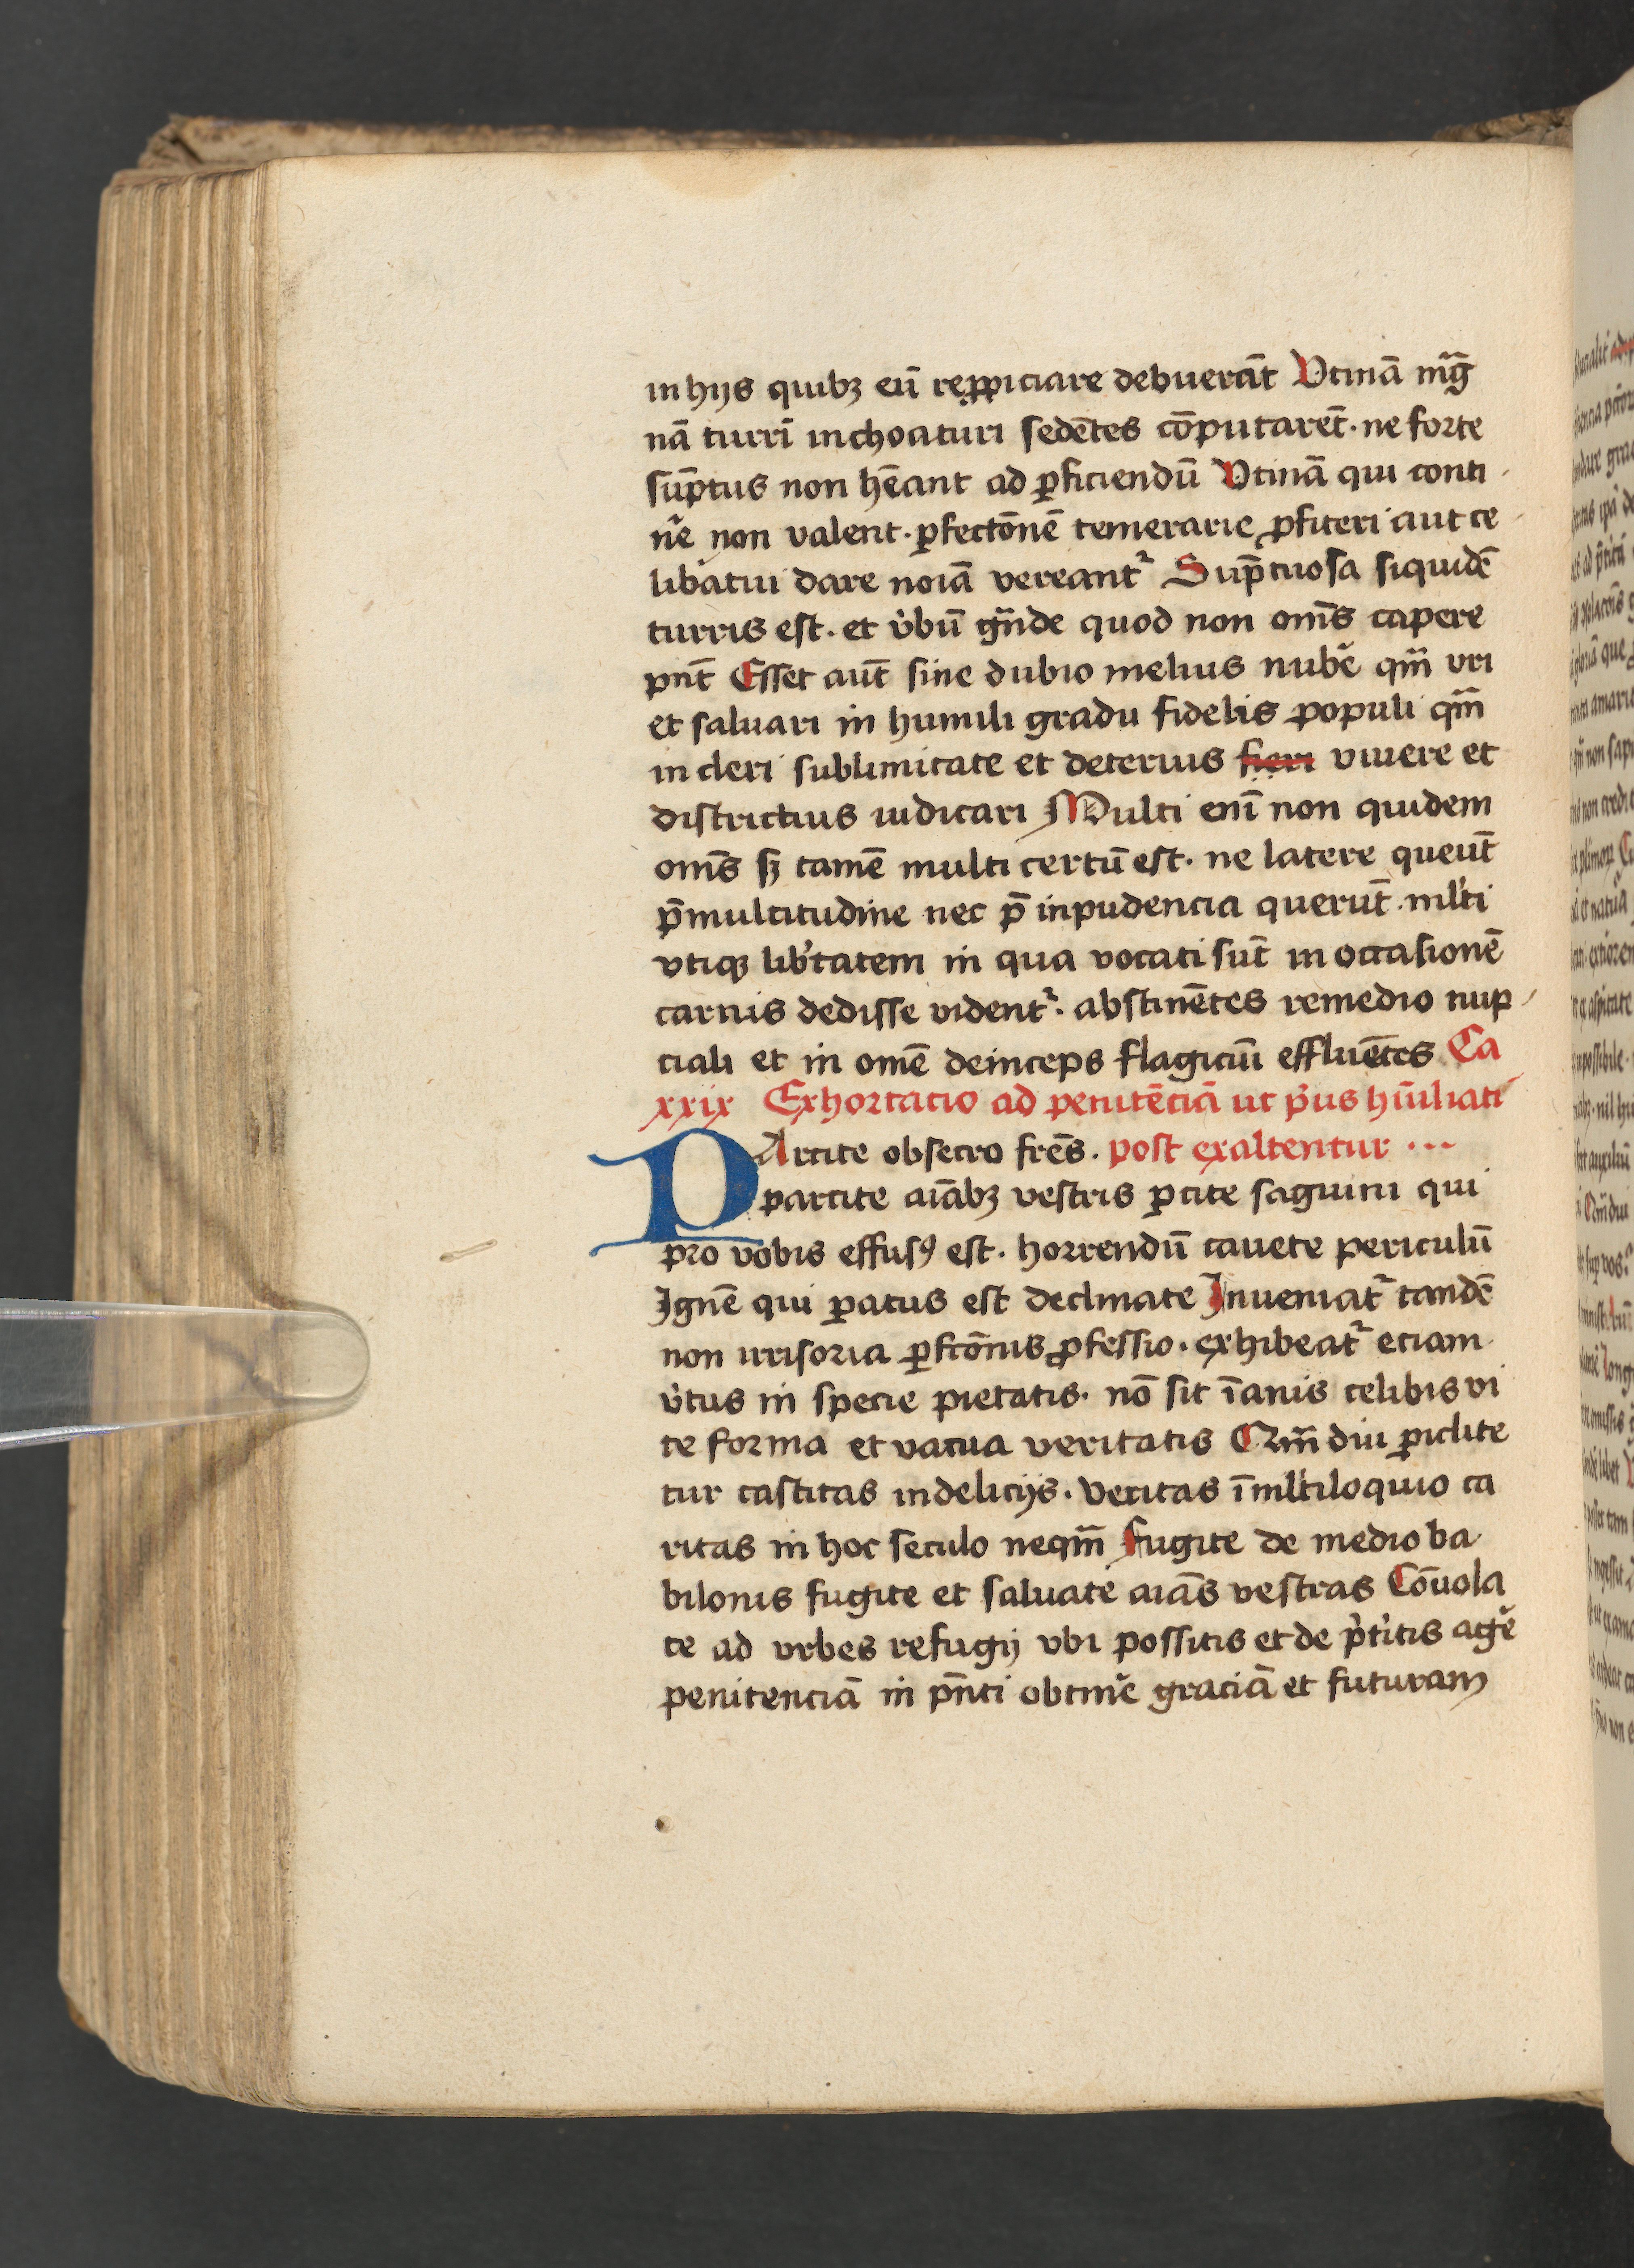 in hijs quibꝫ eū reppiciare debuerāt Vtinā mg̃
nā turrī inchoaturi sedētes cōputarēt · ne forte
sūptus non hēant ad ꝑficiendū Vtinā qui conti
nẽ non valent · ꝑfectōnē temerarie ꝓfiteri aut ce
libatui dare noīa vereantᷣ Sūptuosa siquidē
turris est · et v̓bū gñde quod non om̄s capere
pn̄t Esset aūt sine dubio melius nubẽ qm̄ vri
et saluari in humili gradu fidelis populi qm̄
in cleri sublimitate et deterius fieri viuere et
districtius iudicari Multi enī non quidem
om̄s sꝫ tamē multi certū est · ne latere queūt
p̄ multitudine nec p̄ inpudencia querūt · ml̓ti
vtiqꝫ lib̓tatem in qua vocati sūt in occasionē
carnis dedisse videntᷣ · abstinētes remedio nup
ciali et in omē deinceps flagiciū effluētes Ca
xxix Exhortacio ad penitēciā ut p̓us hūiliati
PArcite obsecro fr̄es · post exaltentur ···
parcite aīabꝫ vestris ꝑcite sagwini qui
pro vobis effusꝰ est · horrendū cauete periculū
Ignē qui ꝑatus est declinate Inueniatᷣ tandē
non irrisoria ꝑfcōnis ꝓfessio · exhibeatᷣ etiam
v̓tus in specie pietatis · nō sit īanis celibis vi
te forma et vacua veritatis Qm̄ diu ꝑiclite
tur castitas in delicijs · veritas ī ml̓tiloquio ca
ritas in hoc seculo neqm̄ Fugite de medio ba
bilonis fugite et saluate aīas vestras Cōuola
te ad vrbes refugij vbi possitis et de p̓t̓itis agẽ
penitenciā in pn̄ti obtinẽ graciā et futuram